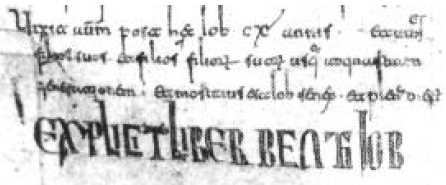 Uixit aūm post hęc iob cxl annis · et uidit
filios suos et filios filiorū suorū usq; ad quartam
generationem · et mortuus est iob senex · et plenus
EXPLICIT LIBER BEATI IOB